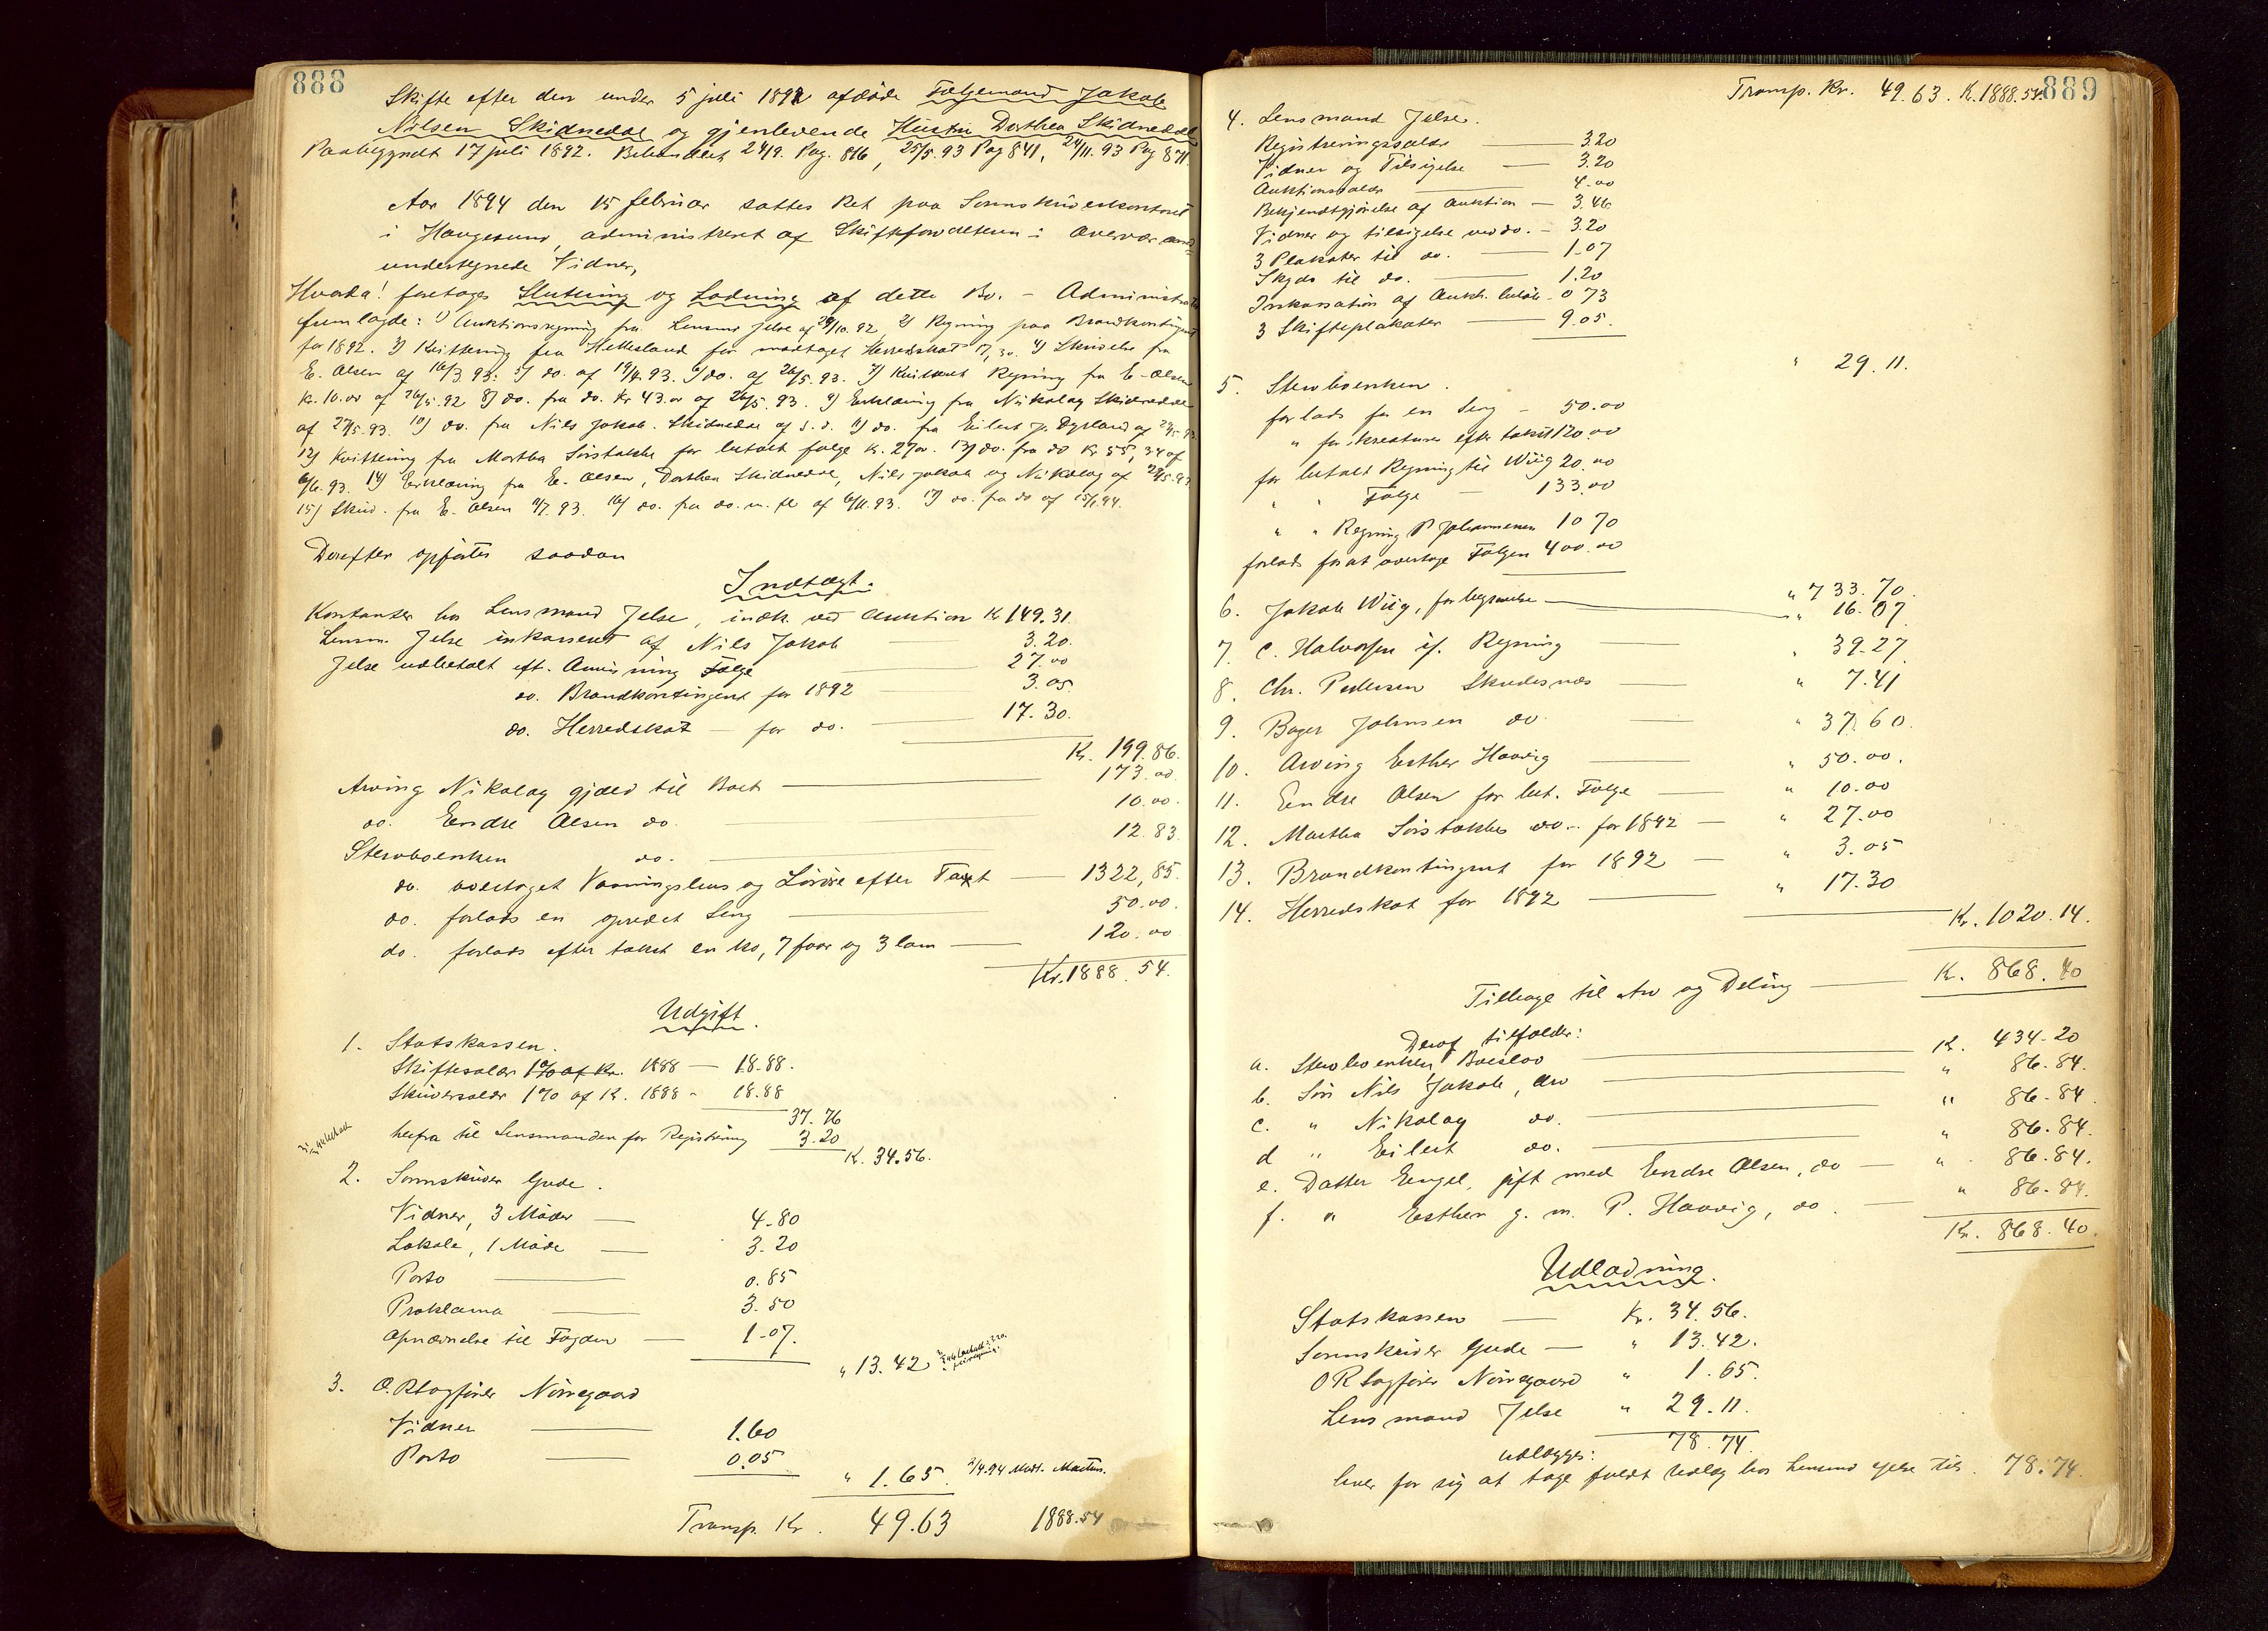 888
Skifte efter den under 5 juli 1892 afdøde Følgemand Jakob
Nilsen Skidnedal og gjenlevende Hustru Dorthea Skidnedal
Paabegyndt 17 juli 1892. Behandlet 24/9. Pag. 816, 25/5.93 Pag 841, 24/11.93 Pag 871
Aar 1894 den 15 februar sattes Ret paa Sorenskriverkontoret
i Haugesund, administreret af Skifteforvalteren i overvær af
undertegnede Vidner,
Hvorda! foretages Slutning og Lodning af dette Bo. - Administrator
fremlagde: 1) Auktionsregning fra Lensmd Jelse af 29/10.92 2) Regning paa Brandkontingent
for 1892. 3) Kvittering fra Hettesland for modtaget Herredskat 17,30. 4) Skrivelse fra
E. Olsen af 16/3.93: 5) do. af 19/4.93. 6) do. af 26/5.93. 7) Kvitteret Regning fra E. Olsen
Kr. 10.00 af 26/5.92 8) do. fra do. Kr 43.00 af 26/5.93. 9) Erklæring fra Nikolay Skidnedal
af 27/5.93. 10) do. fra Nils Jakob. Skidnedal af s.d. 11) do. fra Eilert J. Dysland af 27/5.93
12) Kvittering fra Martha Sørstokke for betalt følge Kr. 27.00. 13) do. fra do Kr 55,34 af
6/11.93. 14) Erklæring fra E. Olsen, Dorthea Skidnedal, Nils Jakob og Nikolay af 27/5.93
15) Skriv. fra E. Olsen 11/7.93. 16) do. fra do. m. fl af 6/11.93. 17) do. fra do af 15/1.94.
Derefter opførtes saadan
Indtægt.
Kontanter hos Lensmand Jelse, indk. ved Auktion Kr 149.31.
Lensm. Jelse inkasseret af Nils Jakob 3.20.
Jelse udbetalt eft. Anvisning Følge 27.00
do. Brandkontingent for 1892 3.05.
do. Herredskat - for do. 17.30.
Kr. 199.86.
Arving Nikolay gjæld til Boet 173.00.
do. Endre Olsen do. 10.00.
Stervboenken do. 12.83.
do. overtaget Vaaningshus og Løsøre efter Taxt 1322,85.
do. forlods en opredet Seng 50.00.
do. forlods efter takst en ko, 7 faar og 3 lam 120.00
Kr. 1888.54.
Udgift.
1. Statskassen.
Skiftesalær 1% af Kr. 1888 - 18.88.
Skriversalær 1% af K. 1888 - 18.88
37.76
herfra til Lensmanden for Registrering 3.20
K. 34.56.
2. Sorenskriver Gude.
Vidner, 3 Møder - 4.80
Lokale, 1 Møde - 3.20
Porto 0.85
Proklama 3.50
Opnævnelse til Fogden 1.07.
" 13.42
3. O.R.Sagfører Nørregaard
Vidner 1.60
Porto 0.05
" 1.65. 2/4.94 Modt.
Transp. Kr. 49.63 1888.54
889
Transp. Kr. 49.63. K. 1888.54.
4. Lensmand Jelse.
Registreringssalær 3.20
Vidner og Tilsigelse 3.20
Auktionssalær 4.00
Bekjendtgjørelse af Auktion - 3.46
Vidner og tilsigelse ved do. - 3.20
3 Plakater til do. 1.07
Skyds til do. 1.20
Inkassation af Aukt. beløb - 0 73
3 Skifteplakater 9.05.
" 29.11.
5. Stervboenken.
forlods for en Seng - 50.00
" for kreaturer efter takst 120.00
for betalt Regning til Wiig 20.00
" " Følge - 133.00
" " Regning P Johannesen 10 70
forlods for at overtage Følgen 400.00
" 733.70.
6. Jakob Wiig, for begravelse " 16.07
7. C. Halvorsen if. Regning " 39.27
8. Chr. Pedersen Skudesnæs " 7.41
9. Bager Johnsen do. " 37.60.
10. Arving Esther Haavig " 50.00.
11. Endre Olsen for bet. Følge " 10.00
12. Martha Sørstokke do. - for 1892 - " 27.00
13. Brandkontingent for 1892 - " 3.05
14. Herredskat for 1892 " 17.30
Kr. 1020.14.
Tilbage til Arv og Deling K. 868.40
Deraf tilfalder:
a. Stervboenken Boeslod K. 434.20
b. Søn Nils Jakob, arv " 86.84.
c. " Nikolay do. " 86.84.
d " Eilert do. " 86.84.
e. Datter Engel, gift med Endre Olsen, do " 86.84.
f. " Esther g. m. P. Haavig, do. " 86.84.
Kr. 868.40.
Udlodning.
Statskassen Kr. 34.56.
Sorenskriver Gude - " 13.42.
OR Sagfører Nørregaard " 1.65.
Lensmand Jelse " 29.11.
78.74.
udlægges:
hver for sig at tage fuldt Udlæg hos Lensmd Jelse til 78.74.